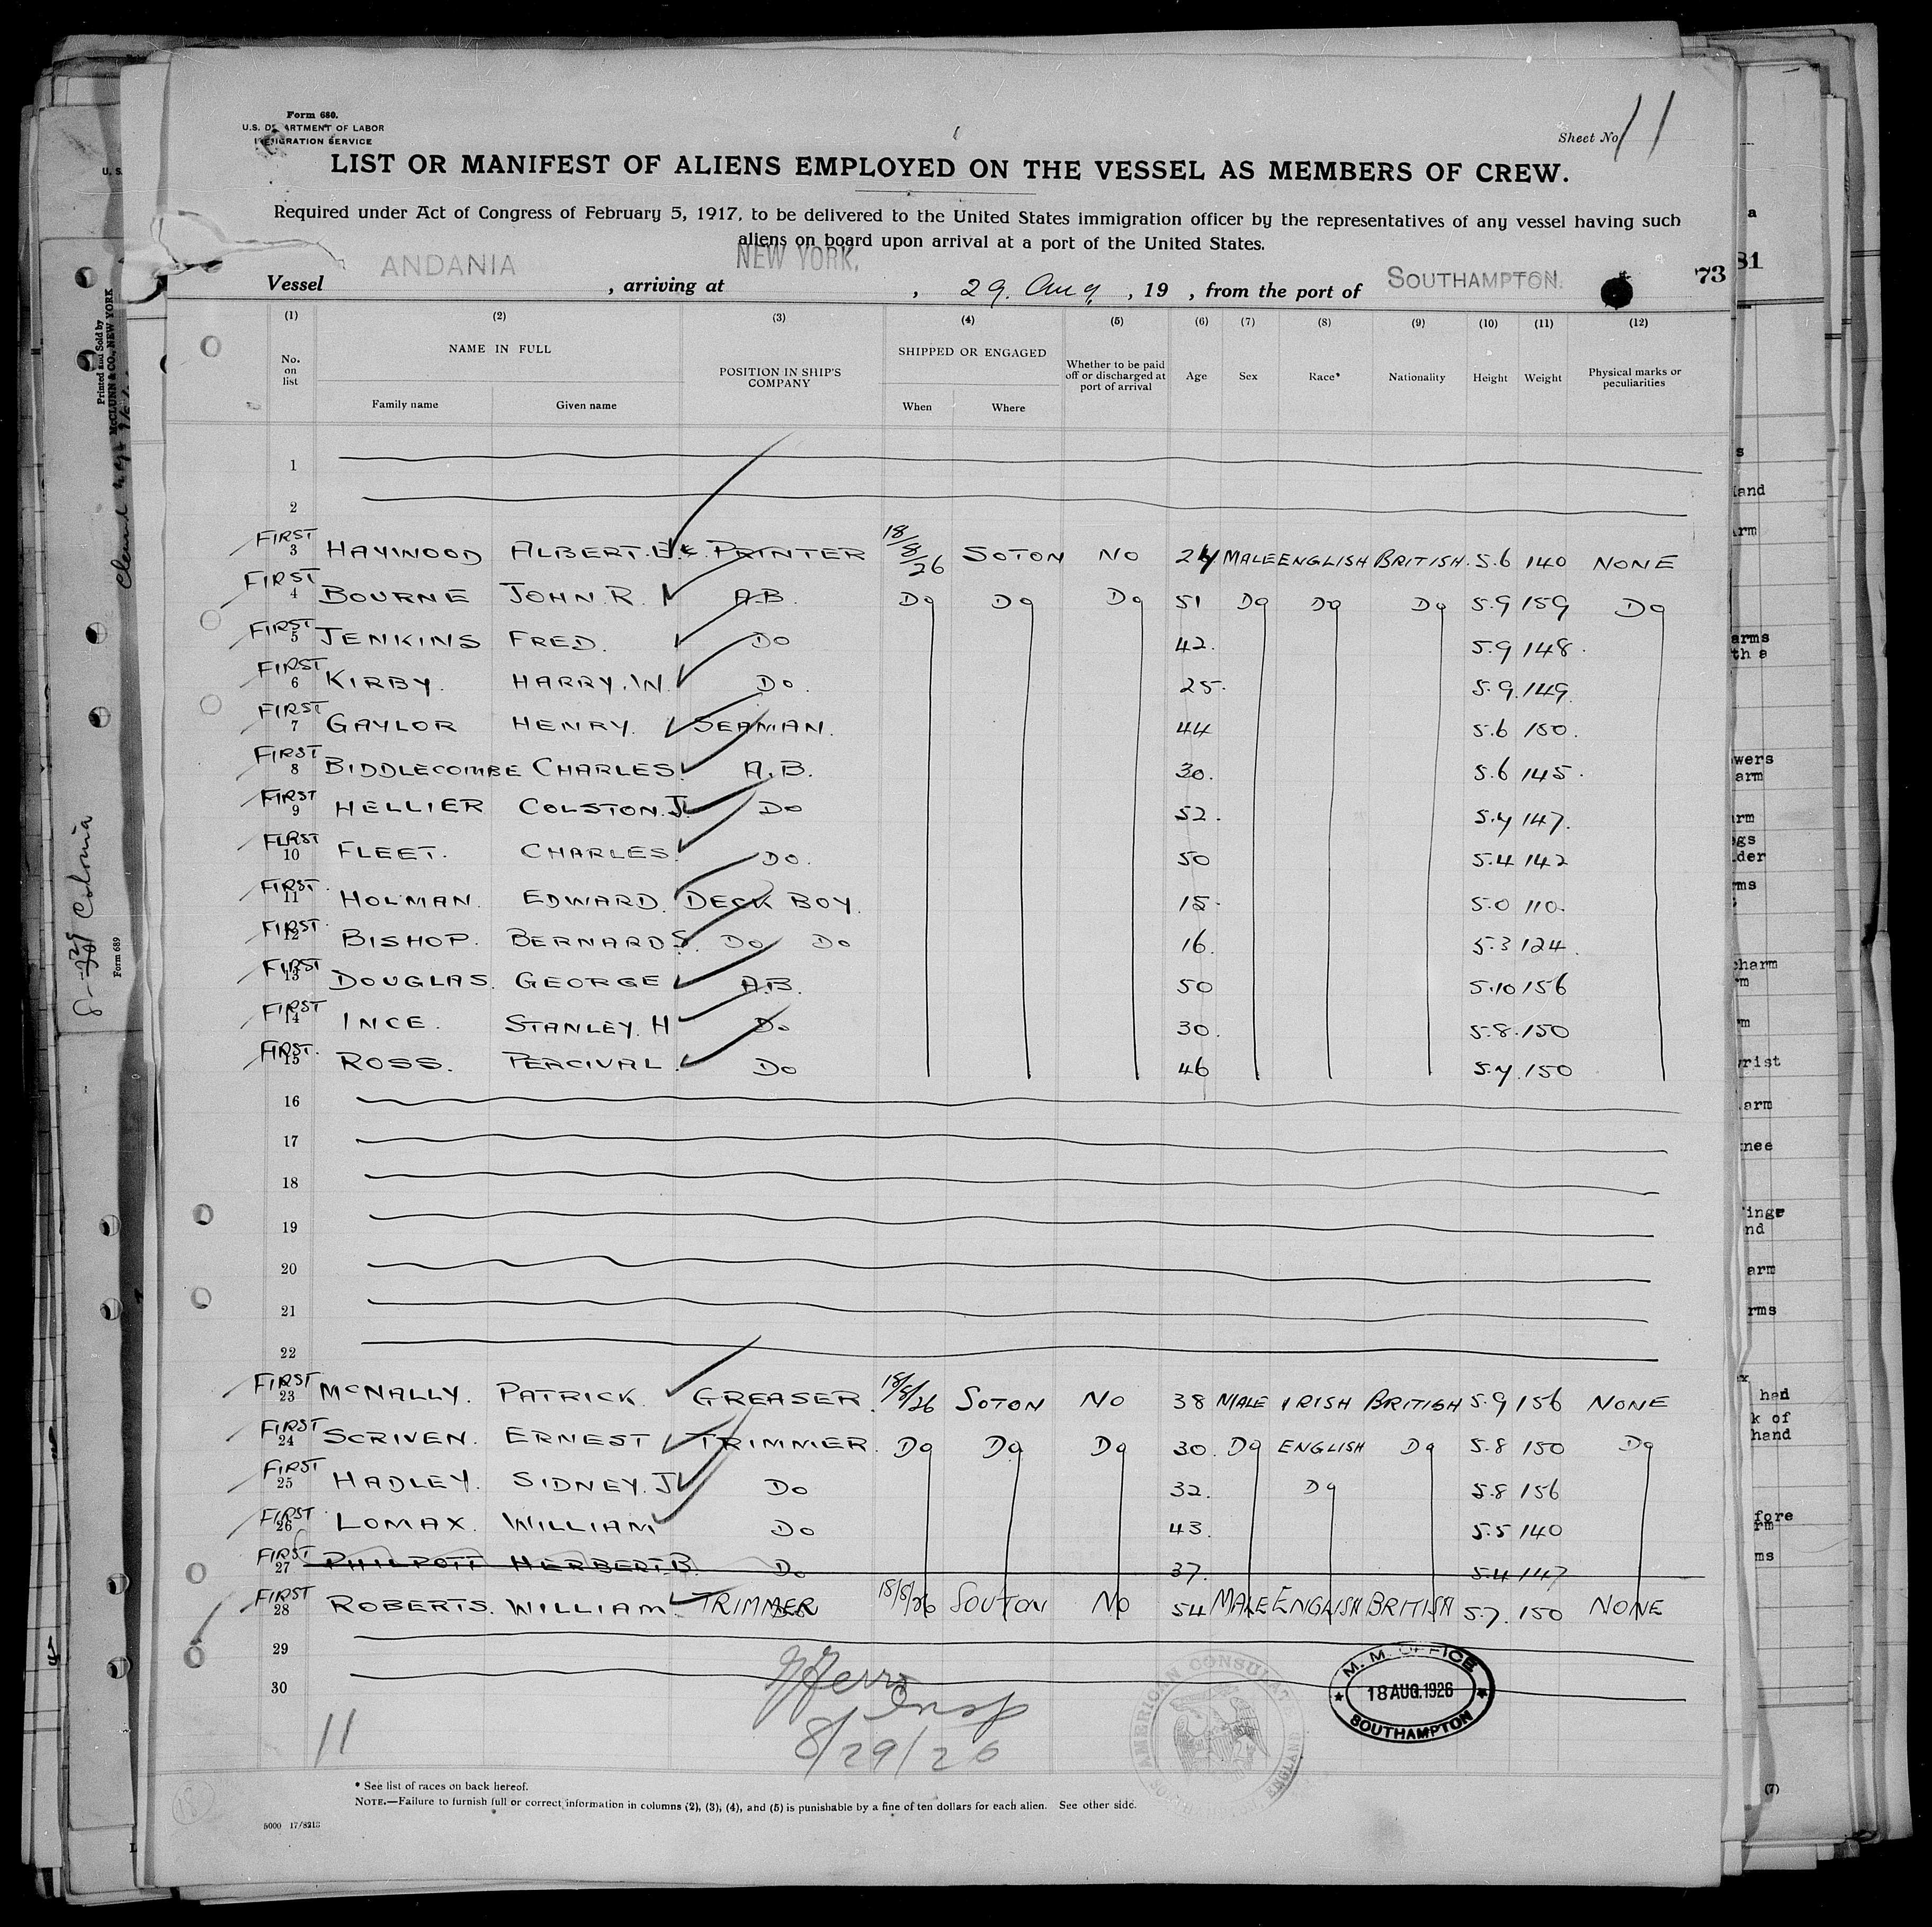 Form 680.
U.S. DEPARTMENT OF LABOR
IMMIGRATION SERVICE
Sheet No 11
LIST OR MANIFEST OF ALIENS EMPLOYED ON THE VESSEL AS MEMBERS OF CREW.
Required under Act of Congress of February 5, 1917, to be delivered to the United States immigration officer by the representatives of any vessel having such
aliens on board upon arrival at a port of the United States.
Vessel ANDANIA, arriving at NEW YORK., 29. Aug, 19 , from the port of SOUTHAMPTON. 73
(1) (2) (3) (4) (5) (6) (7) (8) (9) (10) (11) (12)
No. on list NAME IN FULL POSITION IN SHIP'S COMPANY SHIPPED OR ENGAGED Whether to be paid off or discharged at port of arrival Age Sex Race* Nationality Height Weight Physical marks or peculiarities
Family name Given name When Where
1
2
FIRST 3 HAYWOOD ALBERT.E. PRINTER 18/8/26 SOTON NO 24 MALE ENGLISH BRITISH. 5.6 140 NONE
FIRST 4 BOURNE JOHN.R. A.B. Do Do Do 51 Do Do Do 5.9 159 Do
FIRST 5 JENKINS FRED. DO 42. 5.9 148.
FIRST 6 KIRBY. HARRY.W. Do. 25. 5.9. 149.
FIRST 7 GAYLOR HENRY. SEAMAN. 44 5.6 150.
FIRST 8 BIDDLECOMBE CHARLES. A.B. 30. 5.6 145.
FIRST 9 HELLIER COLSTON.J. Do 52. 5.4 147.
FIRST 10 FLEET. CHARLES. Do. 50 5.4 142
FIRST. 11 HOLMAN. EDWARD. DECK BOY. 15. 5.0 110.
FIRST. 12 BISHOP. BERNARD S. Do Do 16. 5.3 124.
FIRST 13 DOUGLAS. GEORGE A.B. 50 5.10 156
FIRST 14 INCE. STANLEY. H Do 30. 5.8. 150
FIRST. 15 ROSS. PERCIVAL. Do 46 5.7. 150
16
17
18
19
20
21
22
FIRST 23 MCNALLY. PATRICK. GREASER. 18/8/26 SOTON NO 38 MALE IRISH BRITISH 5.9 156 NONE
FIRST 24 SCRIVEN. ERNEST TRIMMER. Do Do Do 30. Do ENGLISH Do 5.8 150 Do
FIRST 25 HADLEY. SIDNEY. J Do 32. Do 5.8 156
FIRST. 26 LOMAX. WILLIAM Do 43. 5.5 140
FIRST 27 PHILPOTT HERBERT.B. Do 37. 5.4 147
FIRST 28 ROBERTS. WILLIAM. TRIMMER 18/8/26 SOUTON NO 54 MALE ENGLISH BRITISH 5.7. 150 NONE
29
30
Insp
8/29/26
11
AMERICAN CONSULATE
ENGLAND
M. M. OFFICE
18 AUG. 1926
SOUTHAMPTON
* See list of races on back hereof.
NOTE.—Failure to furnish full or correct information in columns (2), (3), (4), and (5) is punishable by a fine of ten dollars for each alien. See other side.
5000 17/8213
Printed and Sold by
McCLUNN & CO., NEW YORK
Form 689
Colonia
81
(7)